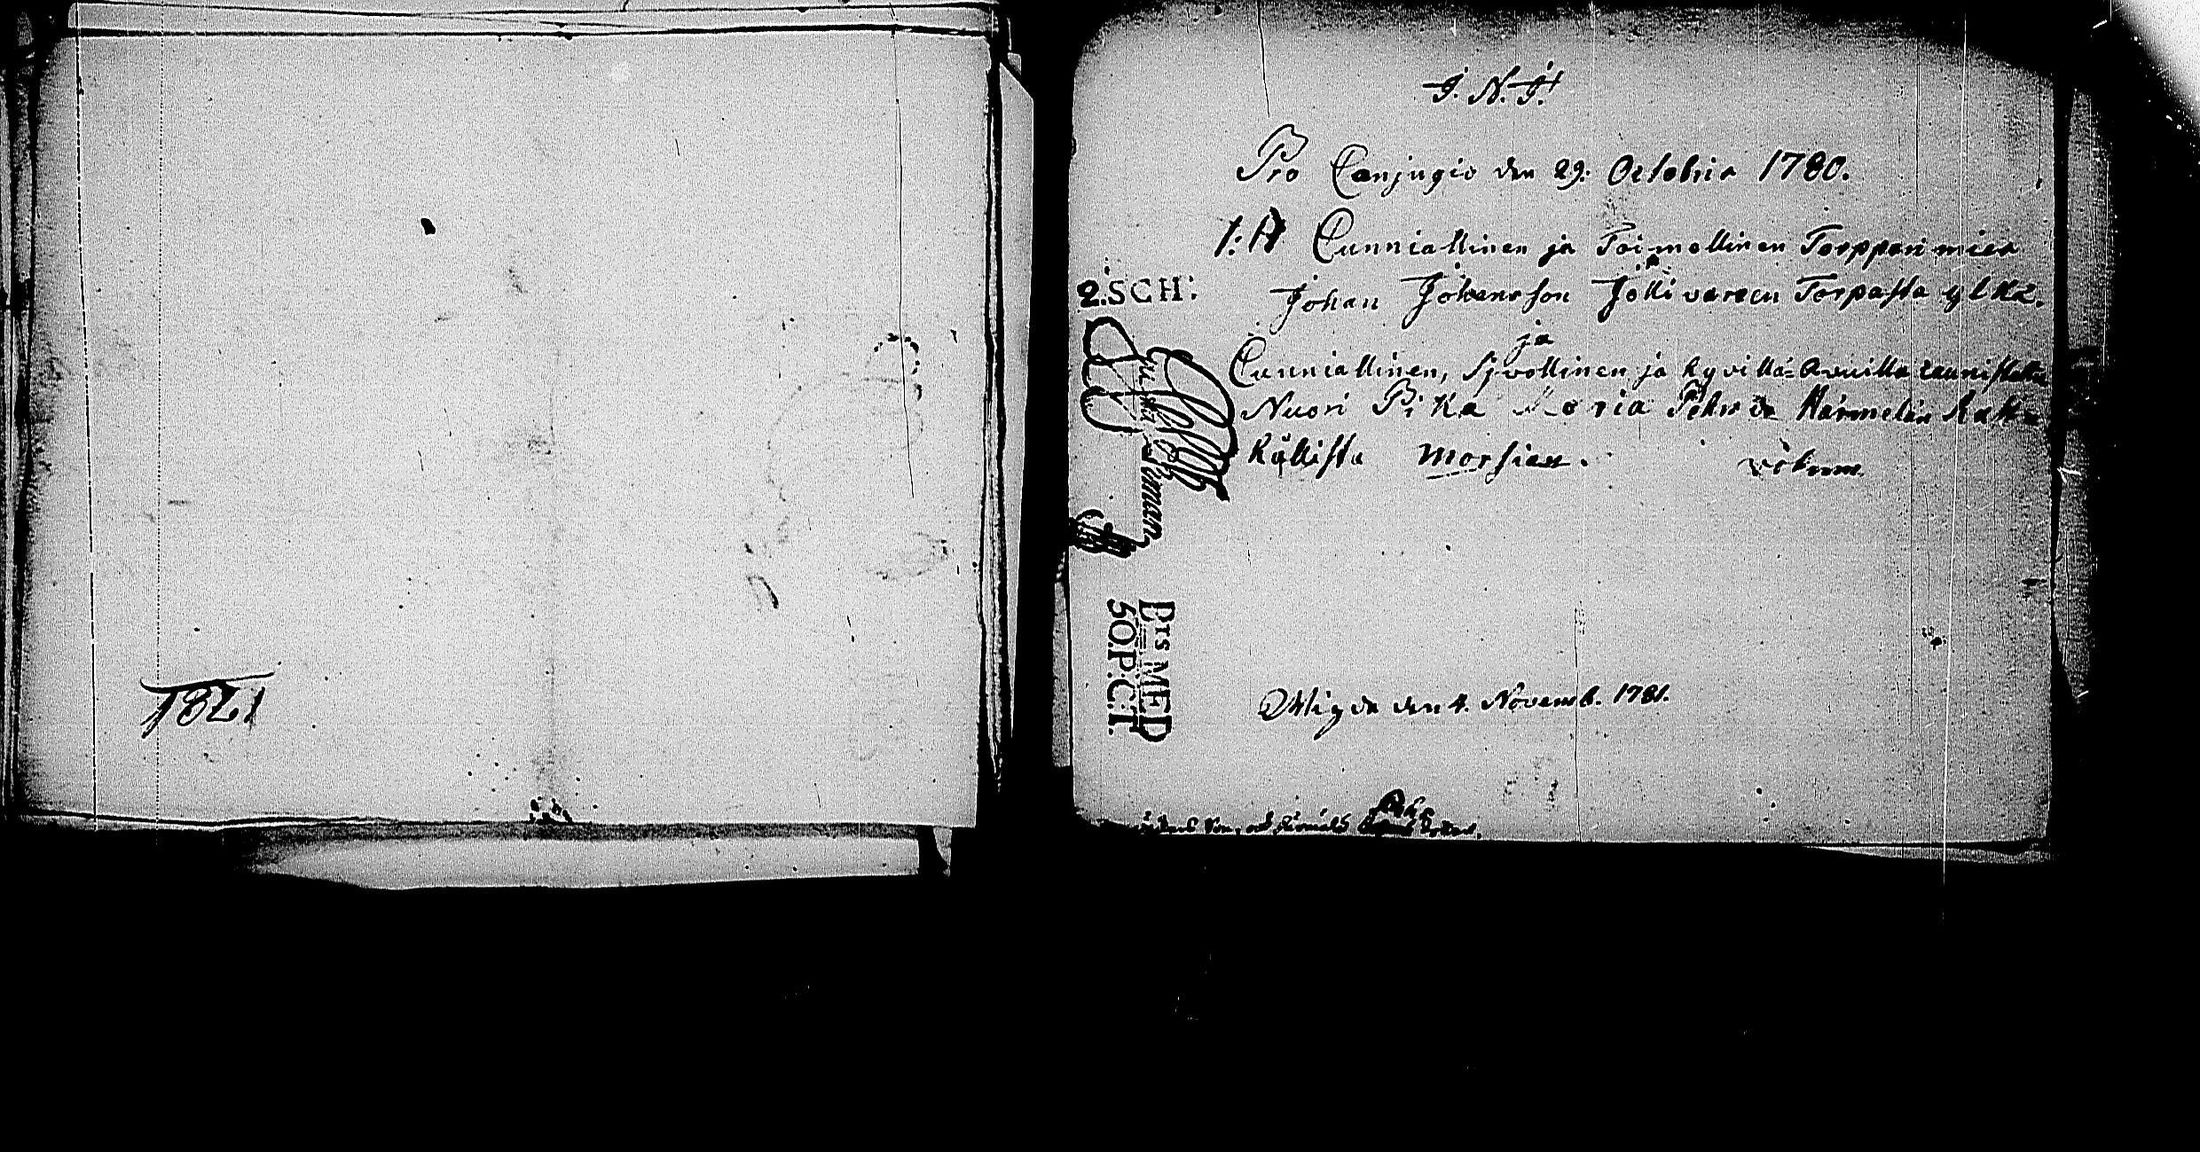 1821
J. N. J.
Pro Conjugio den 29. Octobris 1780.
1:º Cunniallinen ja Toimellinen Torpparimies
Johan Johansson Jollivareen Torpasta ylkä.
ja
Cunniallinen, Sivollinen ja hyvillä Avuilla caunistettu
Nuori Pika Maria Pehrsdr Härmelän
kyllistä Morsian.
2. SCH:
Drs MED
50.P:C:T.
Wigda den 4. Novemb. 1781.